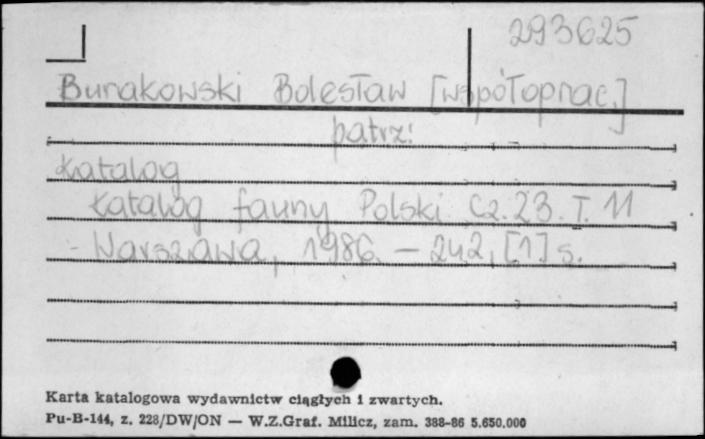 293625
Burakowski Bolesław [współoprac.]
patrz:
Katalog
Katalog fauny Polski Cz. 23. T. 11
- Warszawa, 1986. — 242, [1] s.
Karta katalogowa wydawnictw ciągłych i zwartych.
Pu-B-144, z. 228/DW/ON — W.Z.Graf. Milicz, zam. 388-86 5.650.000